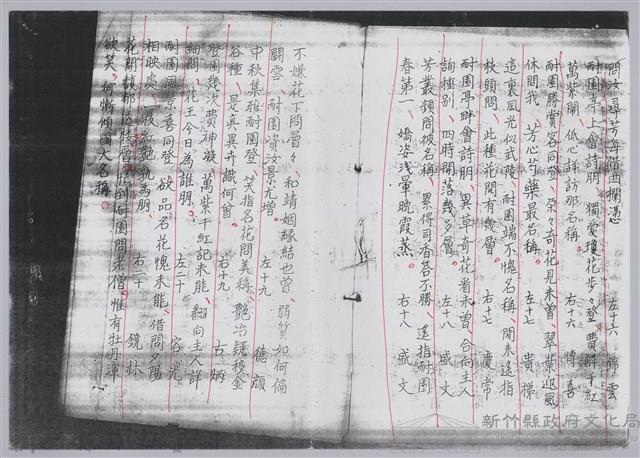 問汝尋芳每借曲欄憑 左十六 錦雲
耐園亭上會詩朋、獨愛瓊花步々登、費解千紅
萬紫開、低心詳訪那名稱。 右十六 傳善
耐園勝賞客同登、朶々奇花見未曾、翠葉迎風
休問我、芳心芍藥最名稱。 左十七 貴標
這裏風光似武陵、耐園端不愧名稱、閒来遙指
枝頭問、此種花開有幾層。 右十七 慶常
耐園亭畔會詩朋、異草奇花看未曾、合向主人
詢種別、四時開落幾多層。 左十八 盛文
芳叢頻問彼名稱、累得司香答不勝、遙指耐園
春第一、嬌姿淺暈晚霞蒸。 右十八 盛文
不嫌花下問層々、和靖姻緣結也曾、弱質如何偏
雲、耐園資汝景尤增。 左十九 德顏
中秋雅耐園登、笑指名花問美稱、艷冶疑移金
谷種、是真異卉識何曾。 右十九 古炳
登園幾次費神凝、萬紫千紅記未能、翻向主人詳
細問、花王今日為誰朋。 左二十 容光
耐園風景喜同登、欲品名花愧未能、借問夕陽
相映處、一枝紅艷孰為朋。 右二十 鏡林
花開馥郁透陵曾、忙倒耐園問老僧、惟有牡丹渾
欲笑、何慚傾國大名稱。
新竹縣政府文化局